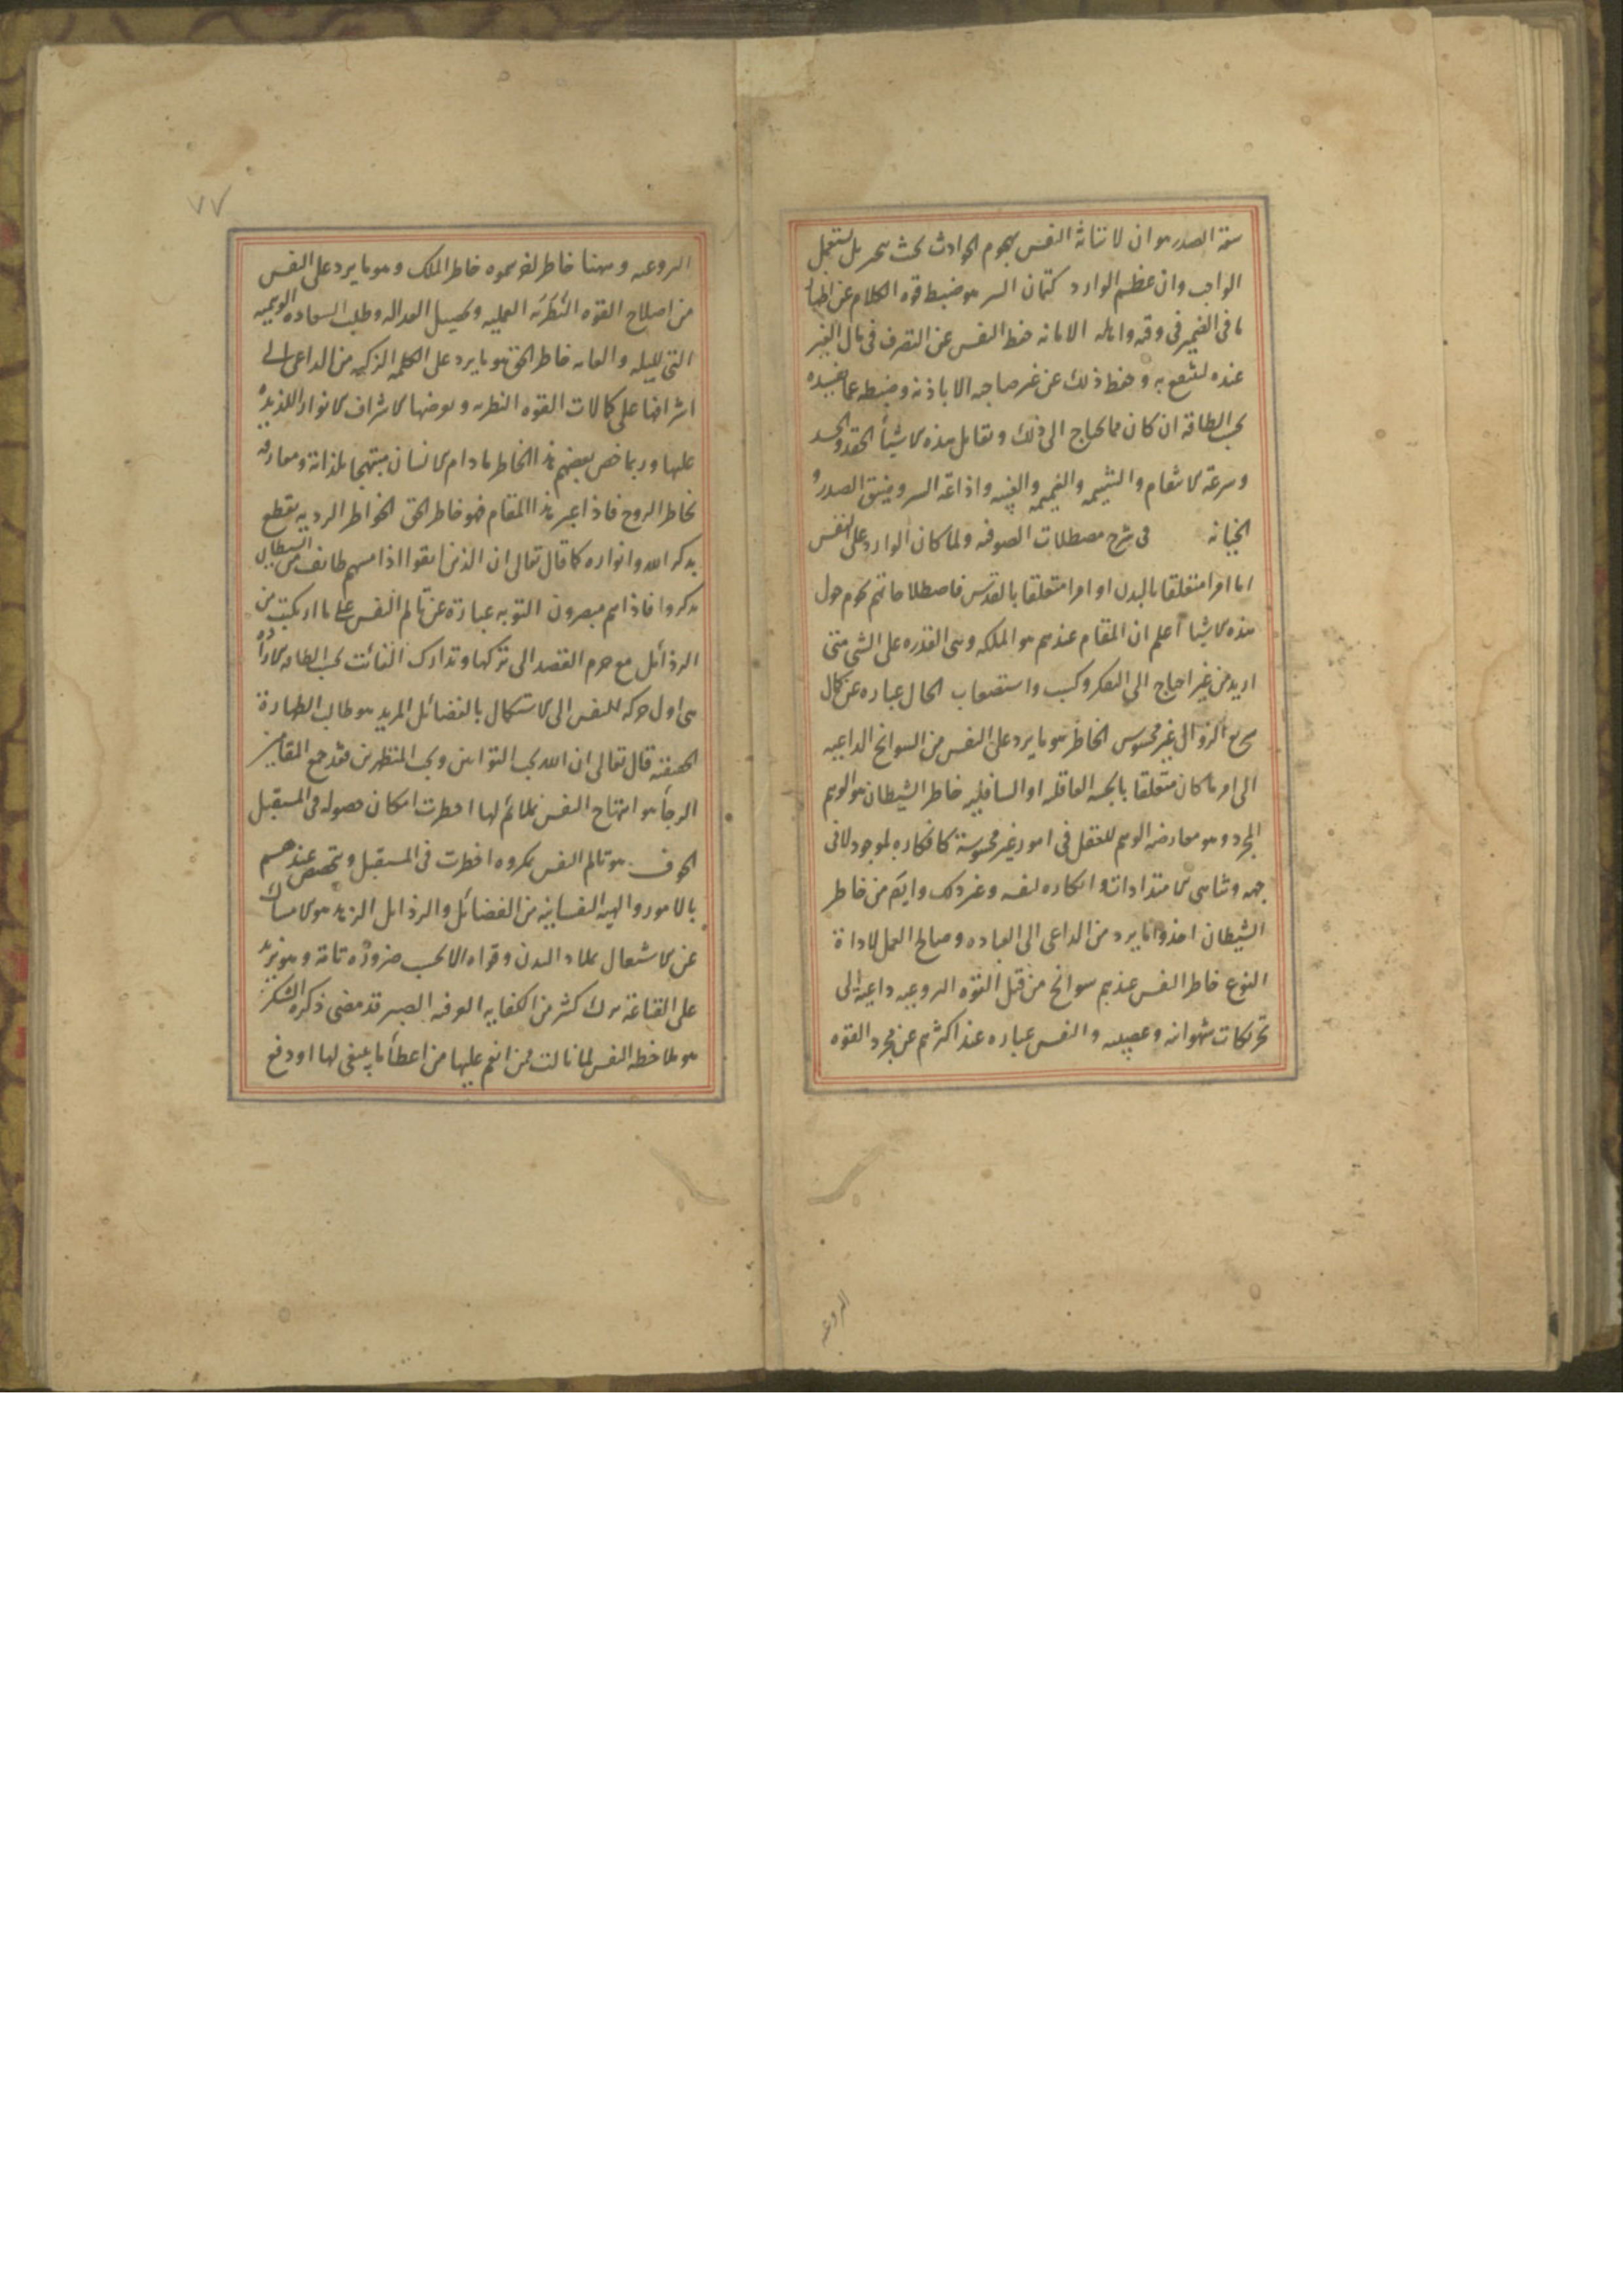 سعة الصدر هو ان لا تتاثر النفس بهجوم الحوادث بحث يتحير بل يستعمل
الواجب وان عظم الوارد كتمان السر هو ضبط قوه الكلام عن اظهار
ما فى الضمير فى وقته وامانه الامانه حفظ النفس عن التصرف فى مال الغير
عنده لينتفع به وحفظ ذلك عن غير صاحبه الا باذنه وضبطه عما يفسده
بحسب الطاقه ان كان مما يحتاج الى ذلك وتقابل هذه الاشيأ الحقد والحسد
وسرعة الانتقام والشتيمه والنميمه والغيبه واذاعة السر وضيق الصدر و
الخيانه فى شرح مصطلحات الصوفيه ولما كان الوارد على النفس
اما امرا متعلقا بالبدن او امرا متعلقا بالقدس فاصطلاحاتهم تحوم حول
هذه الاشيا أعلم ان المقام عندهم هو الملكه وهى القدره على الشى متى
اريد من غير احتياج الى الفكر وكسب واستصعاب الحال عباره عن كمال
سريع الزوال غير محسوس الخاطر هو ما يرد على النفس من السوانح الداعيه
الى امر ما كان متعلقا بالجهه العاقله او السافليه خاطر الشيطان هو الوهم
المجرد وهو معارضه الوهم للعقل فى امور غير محسوسة كانكاره لموجود لا فى
جهه وتناهى الامتدادات وانكاره لنفسه وغير ذلك وايضا من خاطر
الشيطان اخذه ما يرد من الداعى الى العباده وصالح العمل لاداة
النوع خاطر النفس عندهم سوانح من قبل القوه النزوعيه داعية الى
تحريكات شهوانيه وغضبيه والنفس عباره عند اكثرهم عن مجرد القوه
النزوعيه
٧٧
النزوعيه وههنا خاطر لقوم سموه خاطر الملك وهو ما يرد على النفس
من اصلاح القوه النظريه العمليه وتحصيل العداله وطلب السعاده الوهميه
التخييليه والغايه خاطر الحق هو ما يرد على الكلمه الزكيه من الداعى الى
اشرافها على كمالات القوه النظريه وتعرضها لاشراق الانوار اللذيذه
عليها وربما خص بعضهم هذا الخاطر ما دام الانسان مبتهجا بلذاته ومعارفه
بخاطر الروح فاذا عبر هذا المقام فهو خاطر الحق الخواطر الرديه يقطع
بذكر الله وانواره كما قال تعالى ان الذين اتقوا اذا مسهم طائف من الشيطان
تذكروا فاذا هم مبصرون التوبه عبارة عن تالم النفس على ما ارتكبت من
الرذائل مع جزم القصد الى تركها وتدارك الفائت بحسب الطاقه الارادة
هى اول حركه للنفس الى الاستكمال بالفضائل المريد هو طالب الطهارة
الحقيقية قال تعالى ان الله يحب التوابين ويحب المتطهرين فقد جمع المقامين
الرجأ هو ابتهاج النفس بملائم لها اخطرت امكان حصوله فى المستقبل
الخوف هو تالم النفس بمكروه اخطرت فى المستقبل ويختص عندهم
بالامور والهيه النفسانيه من الفضائل والرذايل الزهد هو الامساك
عن الاشتغال بملاذ البدن وقواه الا بحسب ضرورة تامة وهو يزيد
على القناعة بترك كثير من الكفايه العرفيه الصبر قد مضى ذكره الشكر
هو ملاحظه النفس لما نالت ممن انعم عليها من اعطأ ما ينبغى لها او دفع